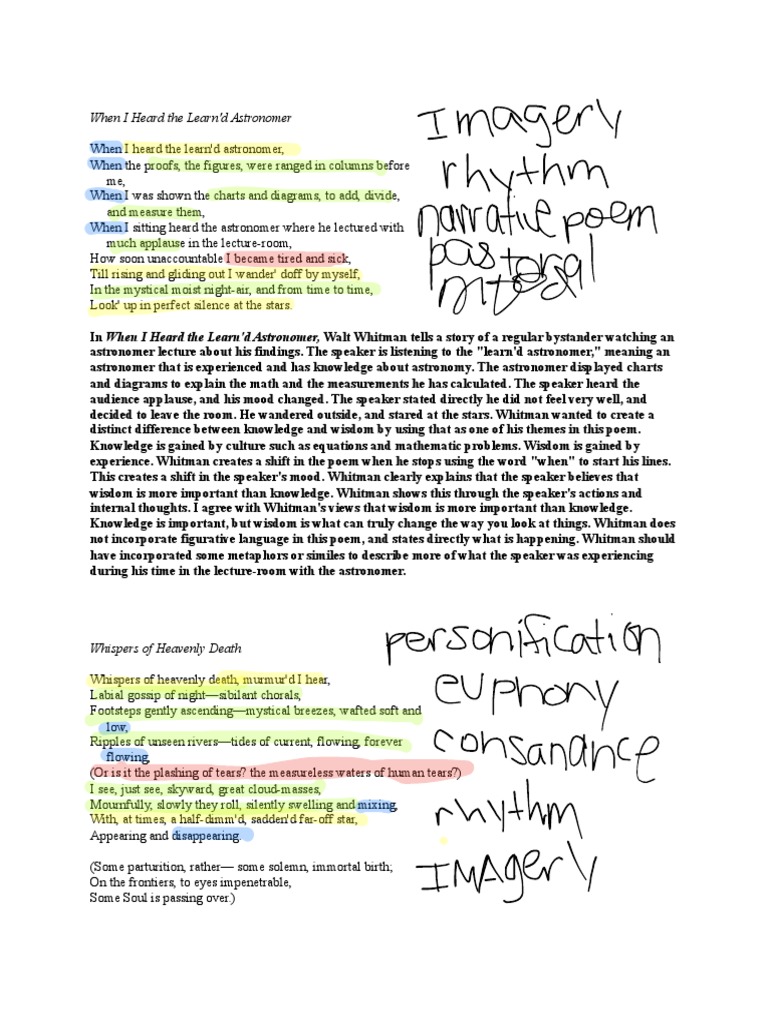 When I Heard the Learn'd Astronomer
Imagery
When I heard the learn'd astronomer,
When the proofs, the figures, were ranged in columns before
me,
rhythm
When I was shown the charts and diagrams, to add, divide,
and measure them,
narrative poem
When I sitting heard the astronomer where he lectured with
much applause in the lecture-room,
How soon unaccountable I became tired and sick,
pastoral
Till rising and gliding out I wander' doff by myself,
In the mystical moist night-air, and from time to time,
Look' up in perfect silence at the stars.
In When I Heard the Learn'd Astronomer, Walt Whitman tells a story of a regular bystander watching an
astronomer lecture about his findings. The speaker is listening to the "learn'd astronomer," meaning an
astronomer that is experienced and has knowledge about astronomy. The astronomer displayed charts
and diagrams to explain the math and the measurements he has calculated. The speaker heard the
audience applause, and his mood changed. The speaker stated directly he did not feel very well, and
decided to leave the room. He wandered outside, and stared at the stars. Whitman wanted to create a
distinct difference between knowledge and wisdom by using that as one of his themes in this poem.
Knowledge is gained by culture such as equations and mathematic problems. Wisdom is gained by
experience. Whitman creates a shift in the poem when he stops using the word "when" to start his lines.
This creates a shift in the speaker's mood. Whitman clearly explains that the speaker believes that
wisdom is more important than knowledge. Whitman shows this through the speaker's actions and
internal thoughts. I agree with Whitman's views that wisdom is more important than knowledge.
Knowledge is important, but wisdom is what can truly change the way you look at things. Whitman does
not incorporate figurative language in this poem, and states directly what is happening. Whitman should
have incorporated some metaphors or similes to describe more of what the speaker was experiencing
during his time in the lecture-room with the astronomer.
personification
Whispers of Heavenly Death
Whispers of heavenly death, murmur'd I hear,
Labial gossip of night—sibilant chorals,
euphony
Footsteps gently ascending—mystical breezes, wafted soft and
low,
Ripples of unseen rivers—tides of current, flowing, forever
flowing,
consanance
(Or is it the plashing of tears? the measureless waters of human tears?)
I see, just see, skyward, great cloud-masses,
Mournfully, slowly they roll, silently swelling and mixing,
With, at times, a half-dimm'd, sadden'd far-off star,
rhythm
Appearing and disappearing.
(Some parturition, rather— some solemn, immortal birth;
IMAgery
On the frontiers, to eyes impenetrable,
Some Soul is passing over.)